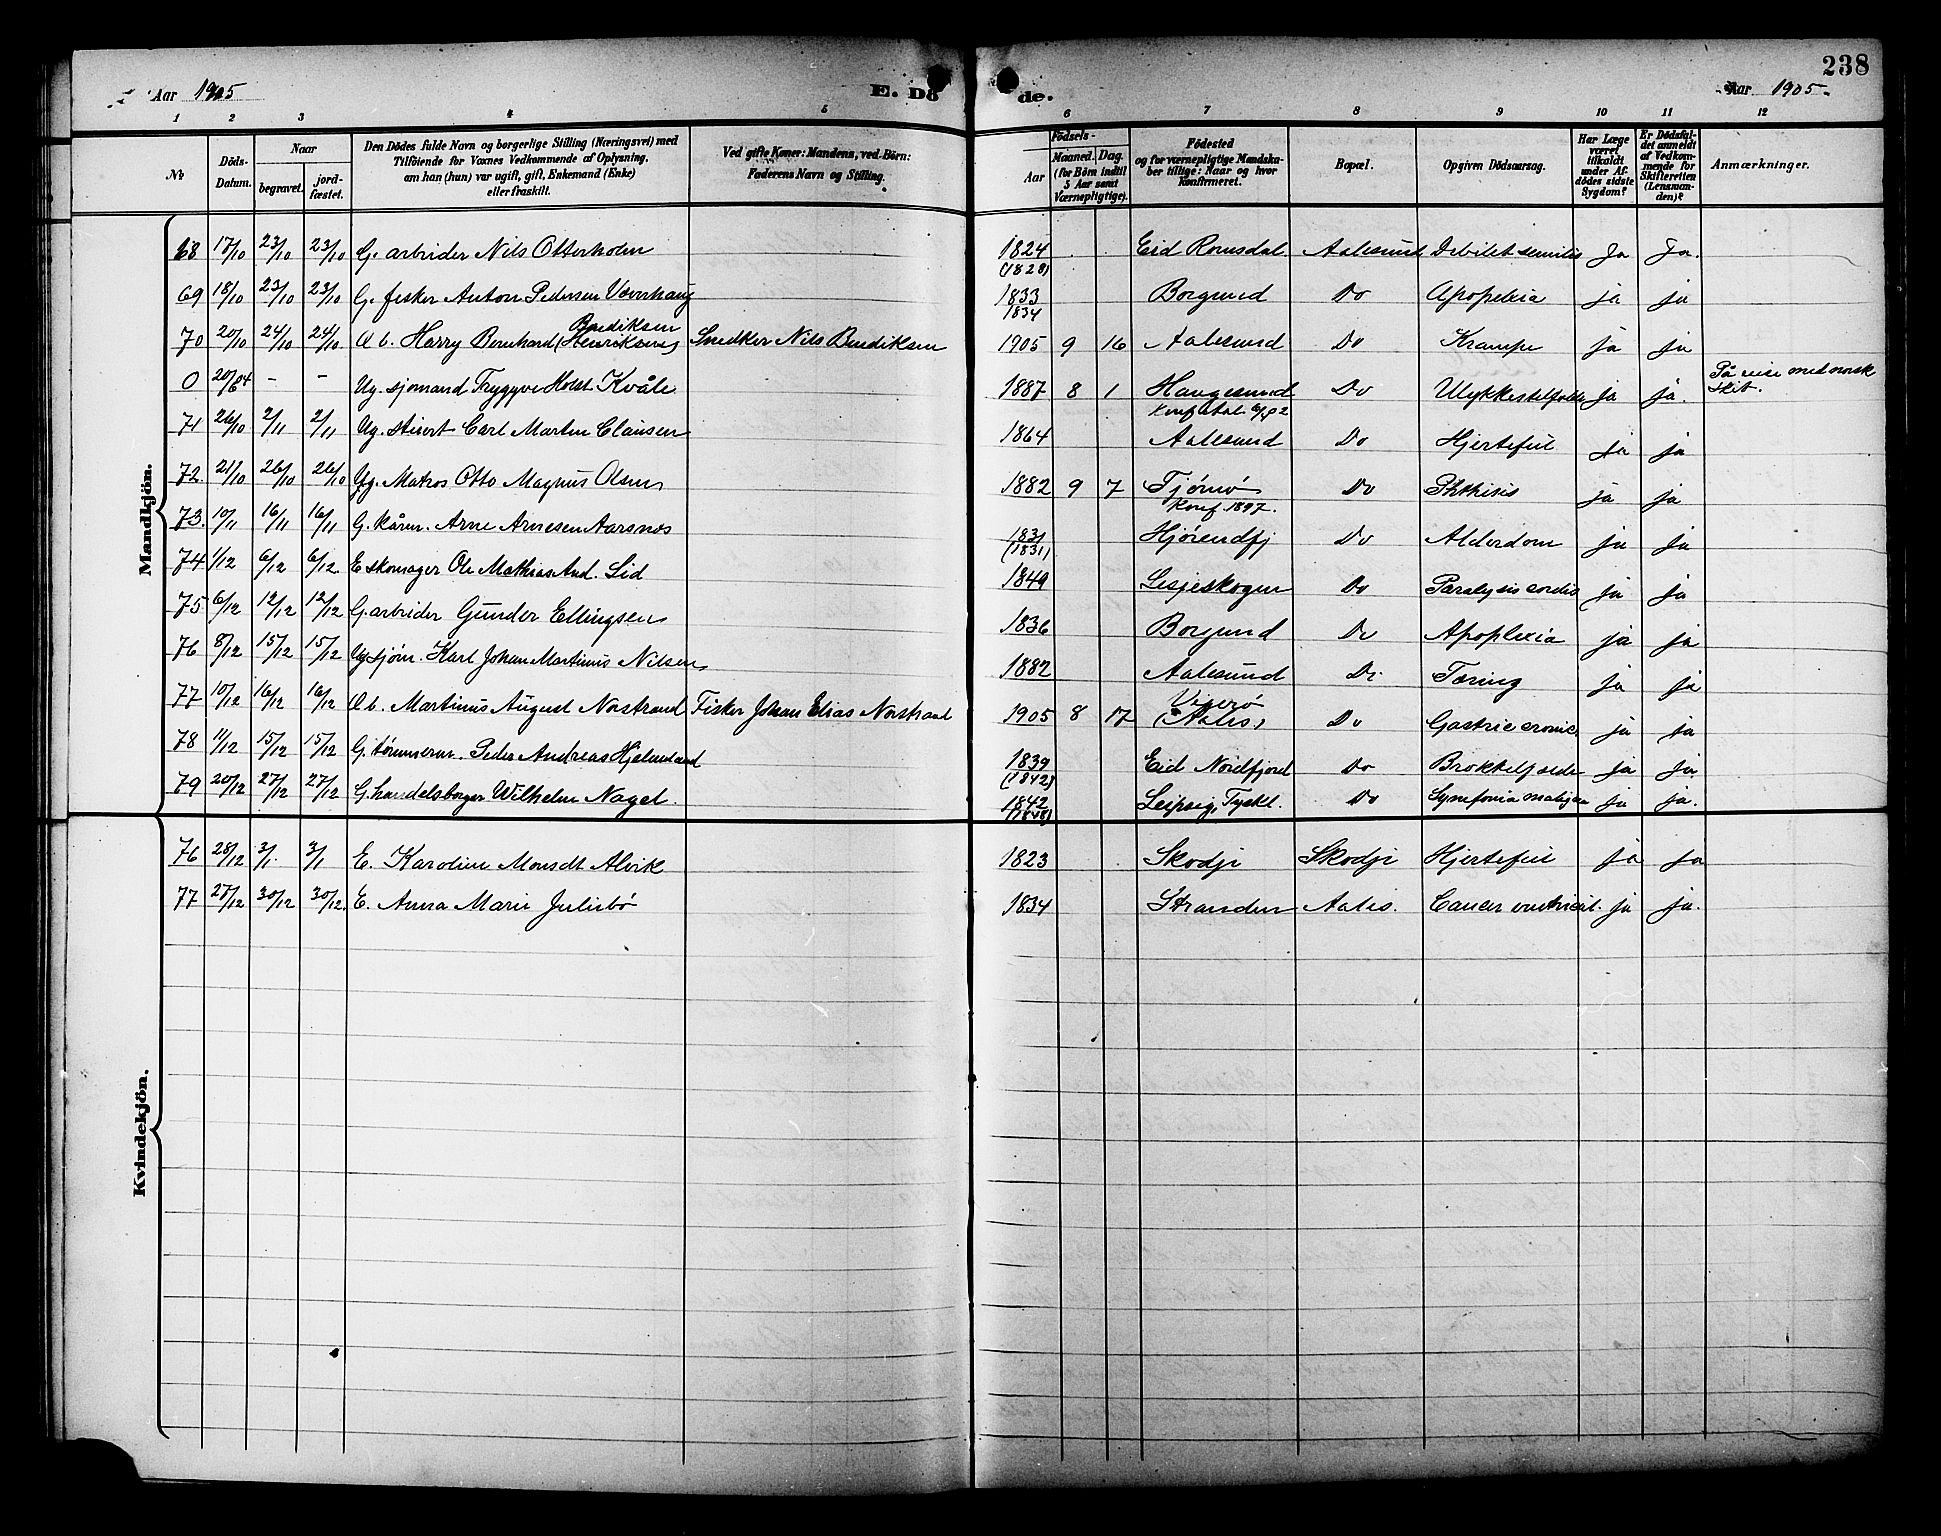 238
Aar 1905 E. Dö de. Aar 1905.
1 2 3 4 5 6 7 8 9 10 11 12
No
Döds-Datum.
Naar
begravet.
jord-fæstet.
Den Dödes fulde Navn og borgerlige Stilling (Næringsvei) med
Tilföiende for Voxnes Vedkommende af Oplysning,
om han (hun) var ugift, gift, Enkemand (Enke)
eller fraskilt.
Ved gifte Koner: Mandens, ved Börn:
Faderens Navn og Stilling.
Födsels-
Aar
Maaned. Dag.
(for Börn indtil
5 Aar samt
Værnepligtige).
Födested
og for værnepligtige Mandska-
ber tillige: Naar og hvor
konfirmeret.
Bopæl.
Opgiven Dödsaarsag.
Har Læge
været
tilkaldt
under Af-
dödes sidste
Sygdom?
Er Dödsfal-
det anmeldt
af Vedkom-
mende for
Skifteretten
(Lensman-
den)?
Anmærkninger.
Mandkjön.
68 17/10 23/10 23/10 G. arbeider Nils Otterholm 1824 (1828) Eid Romsdal Aalesund Debilet senilis Ja Ja.
69 18/10 23/10 23/10 G. fisker Anton Pedersen 1833 1834 Borgund Do Apoplexia ja ja
70 20/10 24/10 24/10 Ub. Harry Bernhard Bendiksen (Henriksen) Snedker Nils Bendiksen 1905 9 16 Aalesund Do Krampe ja ja
0 20/6 04 - - Ug. sjömand Trygve Holst Kvåle 1887 8 1 Haugesund Do Ulykkestilfælde ja ja. På reise med norsk skib.
71 26/10 2/11 2/11 Ug. stuert Carl Martin Clausen 1864 Aalesund Do Hjertefeil ja ja
72 21/10 26/10 26/10 Ug. Matros Otto Magnus Olsen 1882 9 7 Tjömö Konf. 1897. Do Phthisis ja ja
73. 10/11 16/11 16/11 G. kårm. Arne Arnesen Aarsnes 1831 (1831) Hjörendfj Do Alderdom ja ja
74 1/12 6/12 6/12 E skomager Ole Mathias And. Lid 1849 Lesjeskogen Do Paralysis cordis ja ja
75 6/12 12/12 12/12 G. arbeider Gunder Ellingsen 1836 Borgund Do Apoplexia ja ja
76 8/12 15/12 15/12 Ug sjöm. Karl Johan Martinus Nilsen 1882 Aalesund Do Tæring ja ja
77 10/12 16/12 16/12 Ub. Martinus August Norstrand Fisker Johan Elias Norstrand 1905 8 17 Vigerö (Aales.) Do Gastric cronic. ja ja
78 11/12 15/12 15/12 G. tömmerm. Peder Andreas Hjelmeland 1839 (1842) Eid Nordfjord Do Broktilfælde ja ja
79 20/12 27/12 27/12 G. handelsborger Wilhelm Nagel. 1842 (1848) Leipzig, Tyskl. Do ja ja.
Kvindekjön.
76 28/12 3/1 3/1 E. Karoline Monsdt Alvik 1823 Skodje Skodje Hjertefeil ja ja
77 27/12 30/12 30/12. E. Anna Marie Juliebö 1834 Stranden Aales. Cancer ventricul. ja ja.